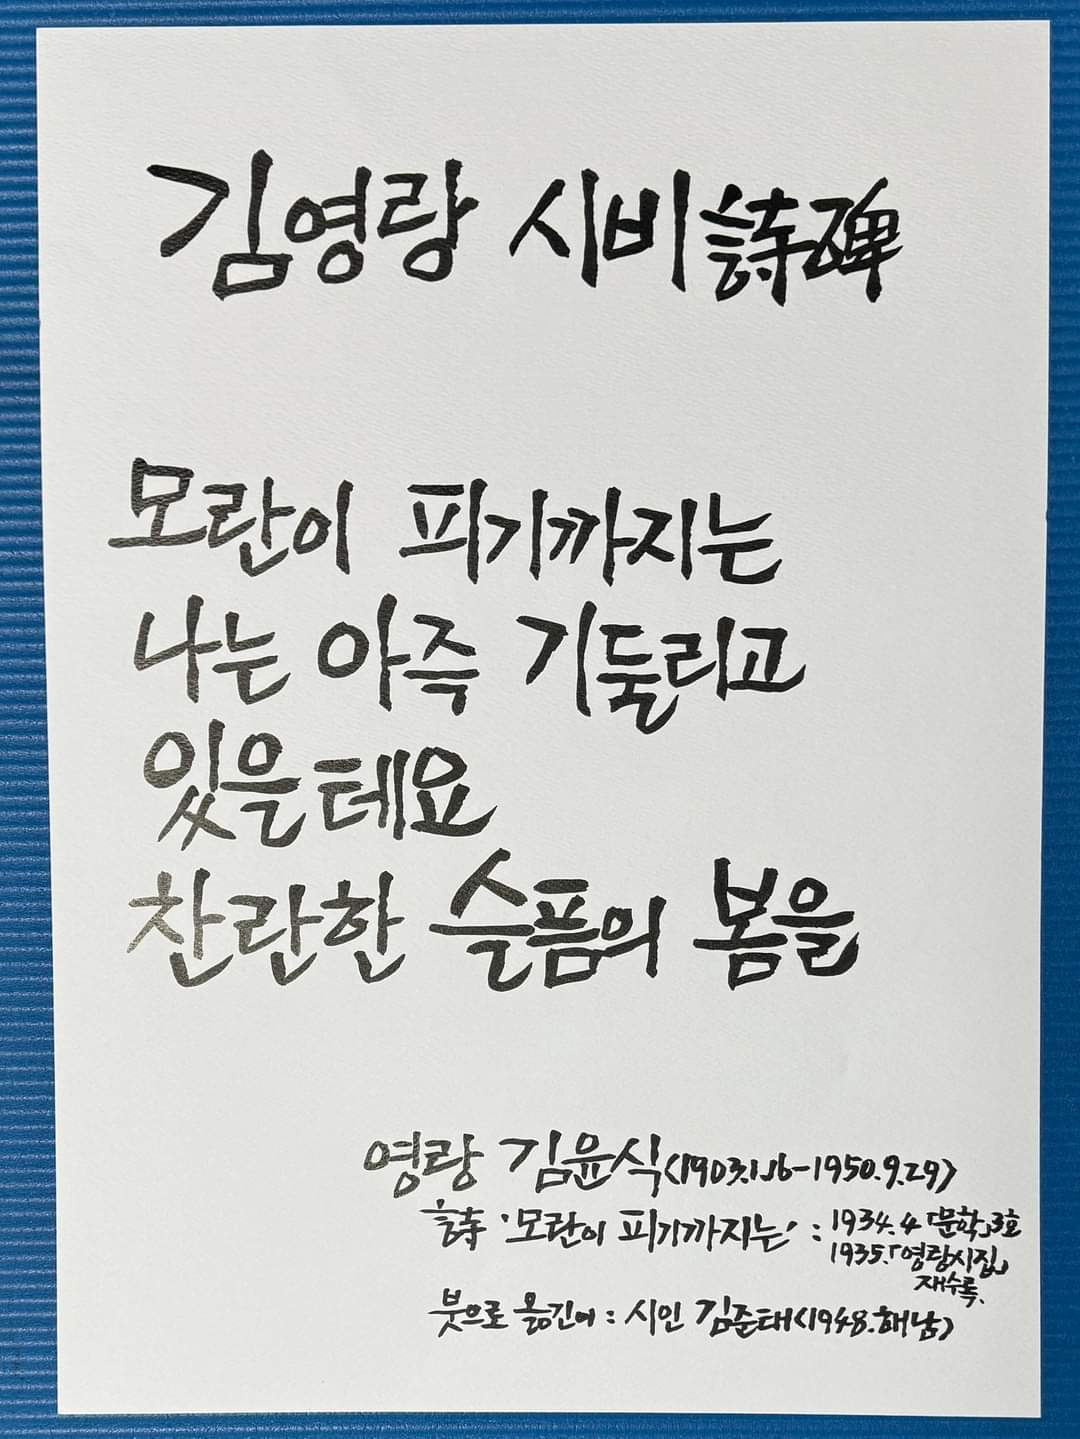 김영랑 시비詩碑
모란이 피기까지는
나는 아즉 기둘리고
있을테요
찬란한 슬픔의 봄을
영랑 김윤식(1903.1.16-1950.9.29)
詩 '모란이 피기까지는' : 1934.4 「문학」3호
1935.「영랑시집」
재수록.
붓으로 옮긴이 : 시인 김준태(1948.해남)